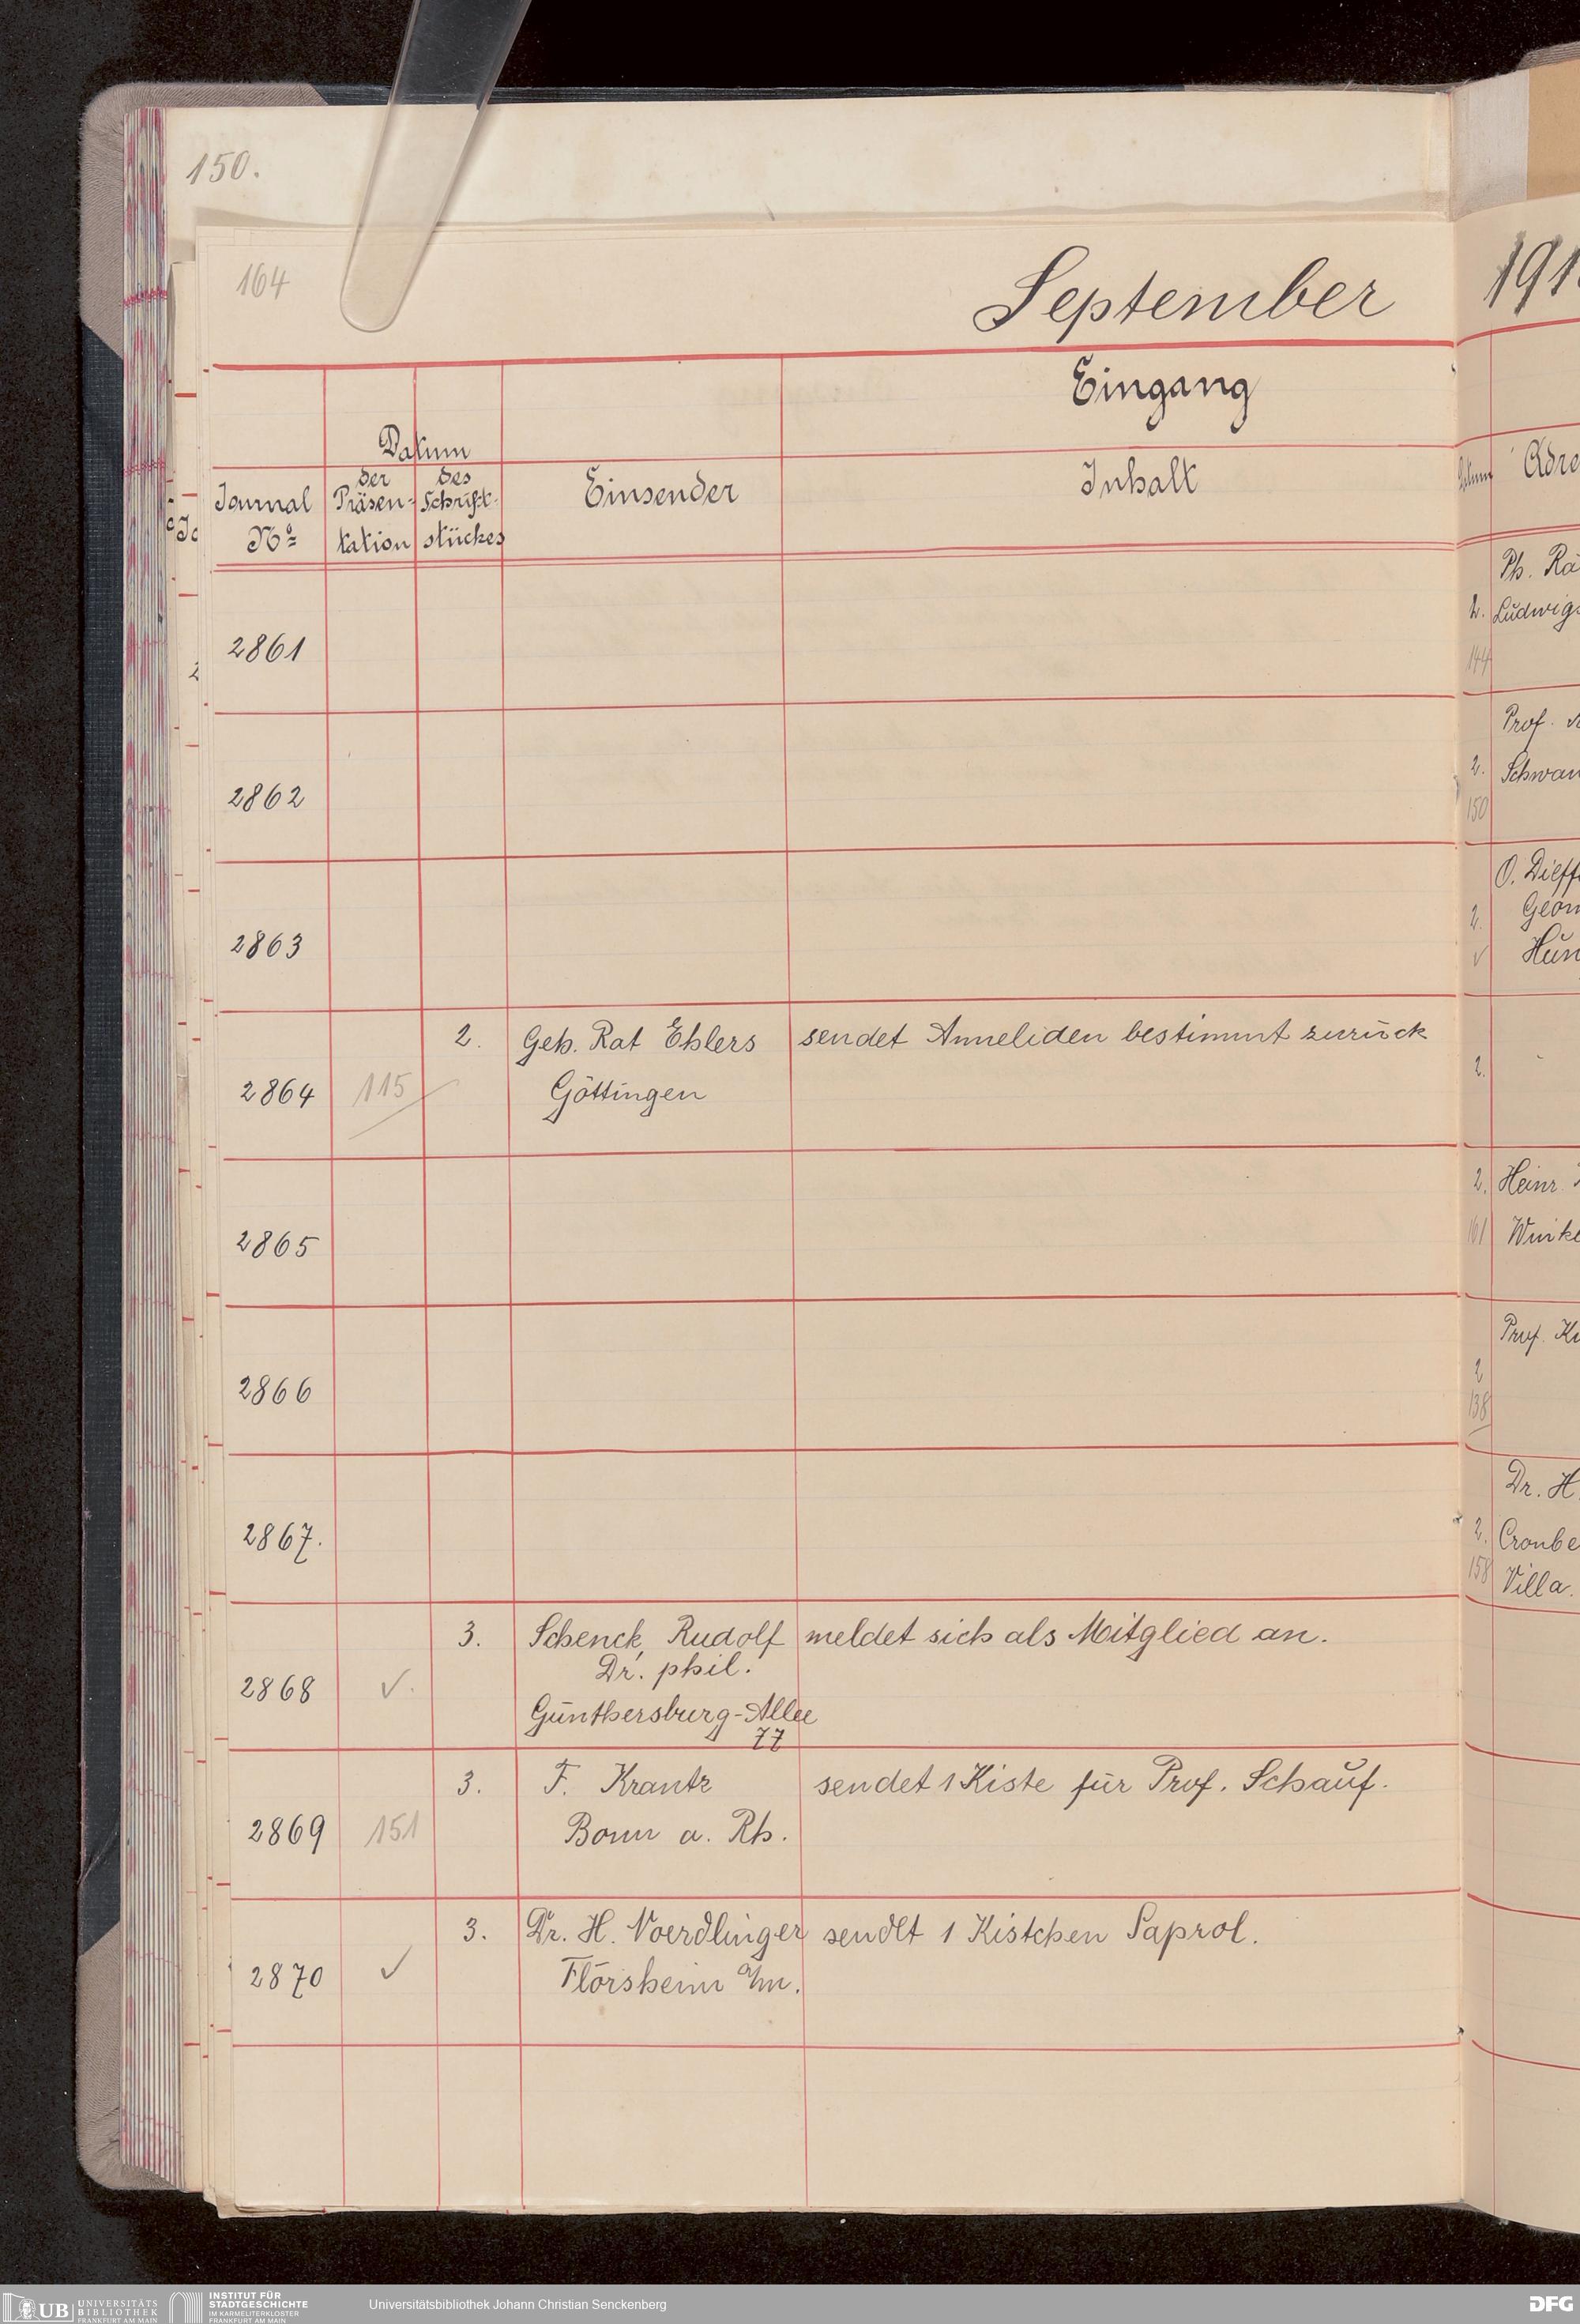 150.
164
September
191
Eingang
Datum
Journal No
der Präsen-
tation
des Schrift-
stückes
Einsender
Inhalt
Datum
Adre
2861
2.
144
Ph. Rä
Ludwigs
2862
2.
150
Prof.
Schwan
2863
2.
✓
O. Dieff
Geom
Hun
2864
115
2.
Geh. Rat Ehlers
Göttingen
sendet Anneliden bestimmt zurück
2.
2865
2.
161
Heinr.
Winke
2866
2
138
Prof. Ki
2867.
2.
158
Dr. H.
Cronbe
Villa.
2868
✓.
3.
Schenck, Rudolf
Dr. phil.
Günthersburg-Allee
77
meldet sich als Mitglied an.
2869
151
3.
F. Krantz
Bonn a. Rh.
sendet 1 Kiste für Prof. Schauf.
2870
✓
3.
Dr. H. Noerdlinger
Flörsheim a/m.
sendet 1 Kistchen Saprol.
UB UNIVERSITÄTS
BIBLIOTHEK
FRANKFURT AM MAIN
INSTITUT FÜR
STADTGESCHICHTE
IM KARMELITERKLOSTER
FRANKFURT AM MAIN
Universitätsbibliothek Johann Christian Senckenberg
DFG